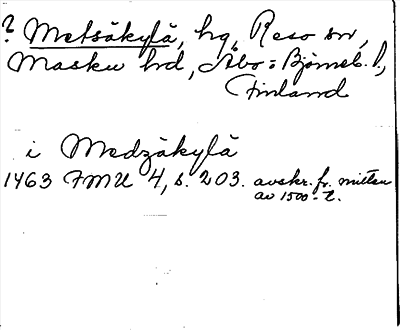 ? Metsäkylä, hg, Reso sn,
Masku hd, Åbo = Björneb. l.,
Finland
i Medzäkylä
1463 FMU 4, s. 203. avskr. fr. mitten
av 1500-t.